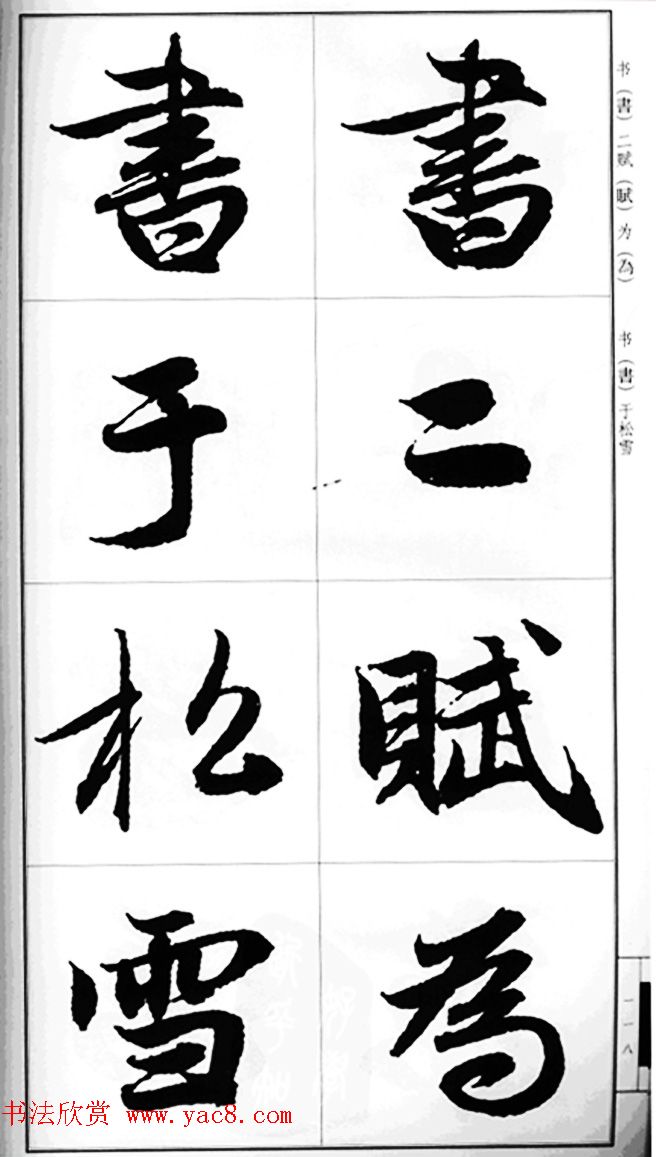 書二賦為
書于松雪
书（書）二赋（賦）为（為） 书（書）于松雪
一一八
书法欣赏 www.yac8.com